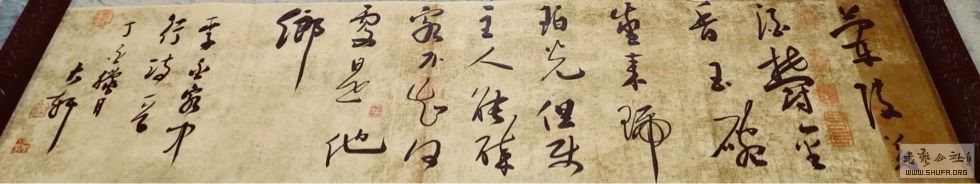 蘭陵美
酒鬱金
香玉碗
盛來琥
珀光但使
主人能醉
客不知何
處是他
鄉
李白客中
行詩一首
丁亥臘月
大軒
書藝公社
WWW.SHUFA.ORG